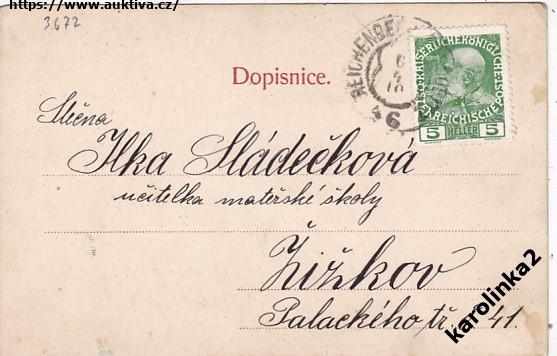 https://www.auktiva.cz/
3672
Dopisnice.
REICHENBE
6
4
10
6
KAISERLICHE KÖNIGLICHE
ÖSTERREICHISCHE POST
5 HELLER 5
Slečna
Ilka Sládečková
učitelka mateřské školy
Žižkov
Palackého tř. 41.
karolinka2